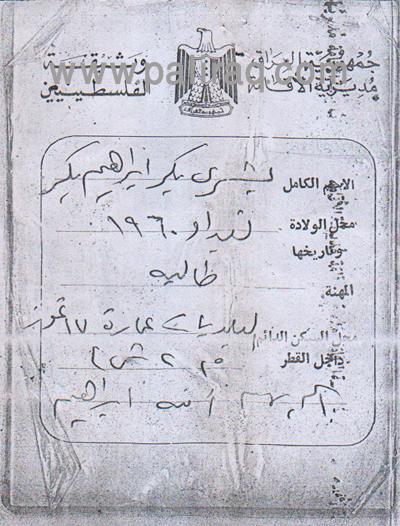 جمهورية العراق
مديرية الاقامة
وثيقة
لفلسطينيين
www.paliraq.com
الاسم الكامل بشرى بكر ابراهيم بكر
محل الولادة بغداد ١٩٦٠
وتاريخها
المهنة طالبه
محل السكن الدائم البلديات عمارة ١٧ تموز
داخل القطر
ابراهيم